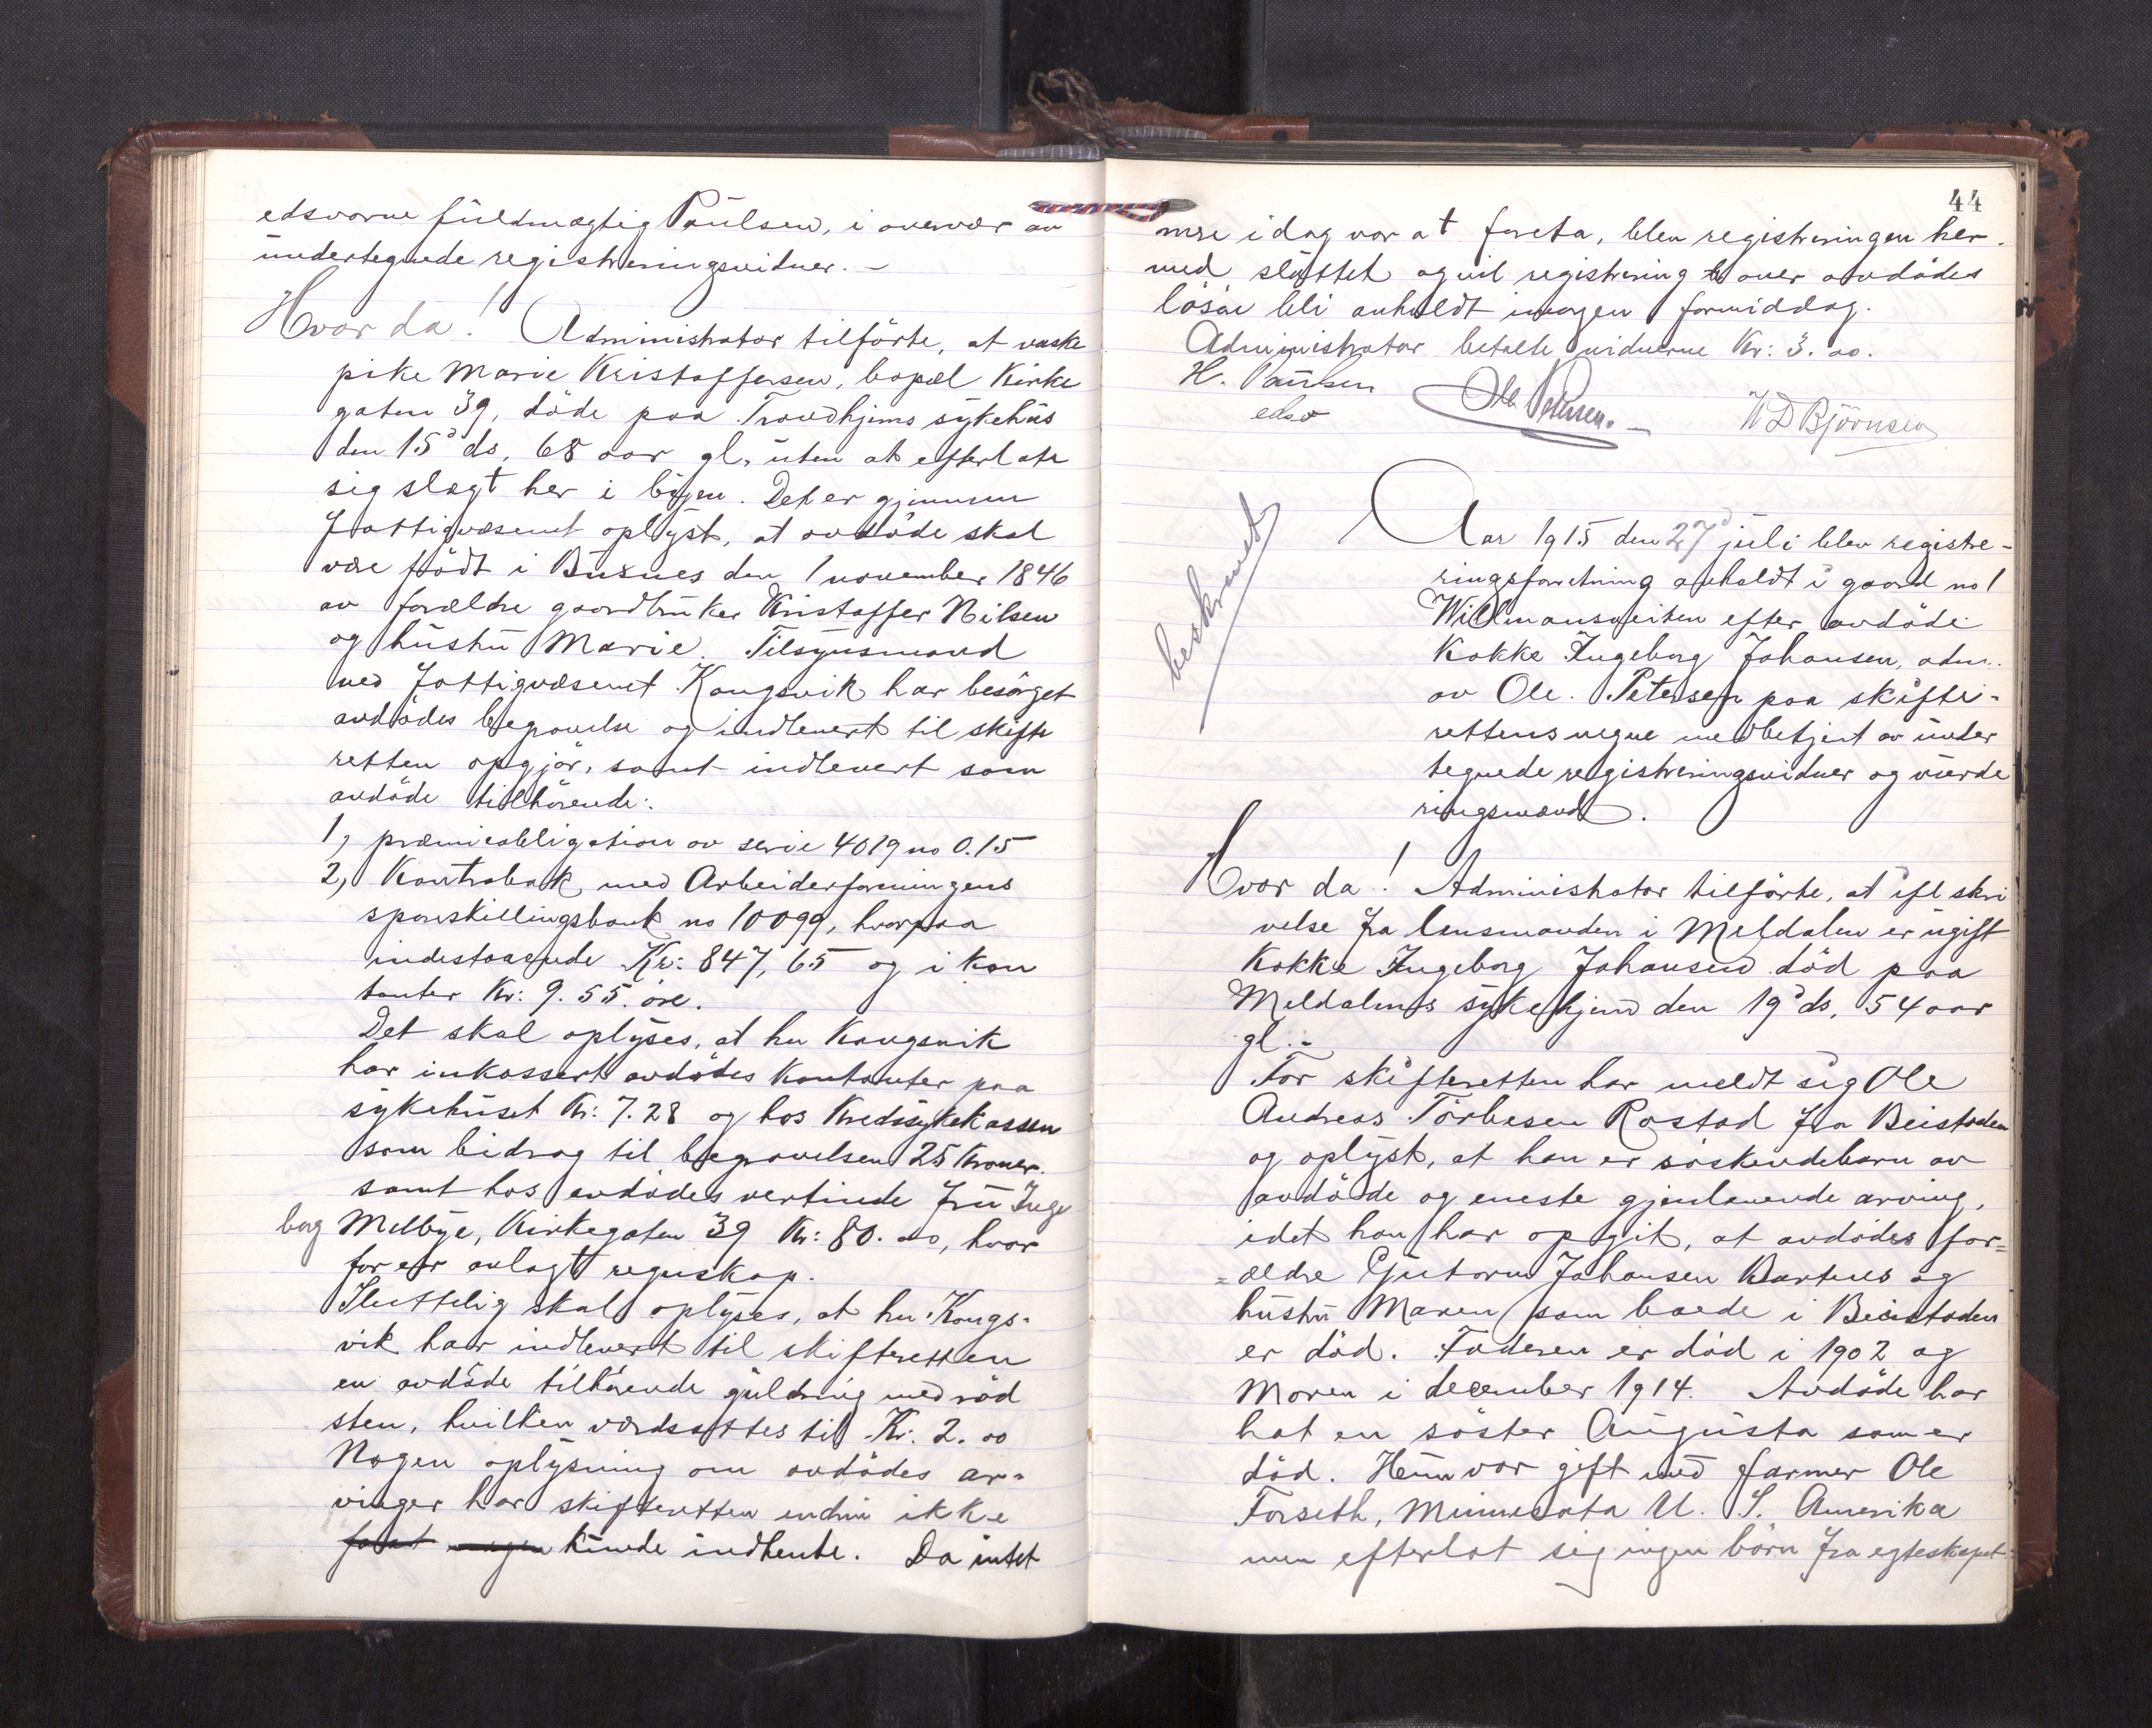 edsvorne fuldmægtig Paulsen, i overvær av
undertegnede registreringsvidner. –
Hvor da! Administrator tilførte, at vaske
pike Marie Kristoffersen, bopæl Kirke
gaten 39, döde paa Trondhjems sykehus
den 15d ds, 68 aar gl, uten at efterlate
sig slegt her i byen. Det er gjennem
Fattigvæsenet oplyst, at avdöde skal
være födt i Buxnes den 1 november 1846
av forældre gaardbruker Kristoffer Nilsen
og hustru Marie. Tilsynsmand
ved Fattigvæsenet Kongsvik har besörget
avdödes begravelse og indlevert til skifte
retten opgjör, samt indlevert som
avdöde tilhörende:
1, præmieobligation av serie 4019 no 0.15
2, Kontrabok med Arbeiderforeningens
spareskillingsbank no 10099, hvorpaa
indestaaende Kr: 847,65 og i kon
tanter Kr: 9.55. öre.
Det skal oplyses, at hr Kongsvik
har inkassert avdödes kontanter paa
sykehuset Kr: 7.28 og hos Kredssykekassen
som bidrag til begravelsen 25 Kroner.
samt hos avdödes vertinde Fru Inge
borg Melbye, Kirkegaten 39 Kr: 80.00, hvor
for er avlagt regnskap.
Sluttelig skal oplyses, at hr. Kongs-
vik har indlevert til skifteretten
en avdöde tilhörende guldring med röd
sten, hvilken værdsattes til Kr. 2.00
Nogen oplysning om avdödes ar-
vinger har skifteretten endnu ikke
kunde indhente. Da intet
44
mere idag var at foreta, blev registreringen her-
med sluttet og vil registrering over avdödes
lösöre bli avholdt imorgen formiddag.
Administrator betalte vidnerne Kr: 3.00.
H. Paulsen Ole Petersen. – W D Björnsen
edsv
beskrevet
Aar 1915 den 27d juli blev registre-
ringsforretning avholdt i gaard no 1
Wildmansveiten efter avdöde
Kokke Ingeborg Johansen, adm.
av Ole. Petersen paa skifte-
rettens vegne medbetjent av under
tegnede registreringsvidner og værde
ringsmænd.
Hvor da! Administrator tilförte, at ifl skri
velse fra lensmanden i Meldalen er ugift
Kokke Ingeborg Johansen död paa
Meldalens sykehjem den 19d ds, 54 aar
gl. –
For skifteretten har meldt sig Ole
Andreas Törbesen Rostad fra Beistaden
og oplyst, at han er söskendebarn av
avdöde og eneste gjenlevende arving,
idet han har opgit, at avdödes for=
=ældre Gutorm Johansen Bartnes og
hustru Maren som boede i Beistaden
er död. Faderen er död i 1902 og
Moren i december 1914. Avdöde har
hat en söster Augusta som er
död. Hun var gift med farmer Ole
Forseth, Minnesota U. S. Amerika
men efterlot sig ingen börn fra egteskapet